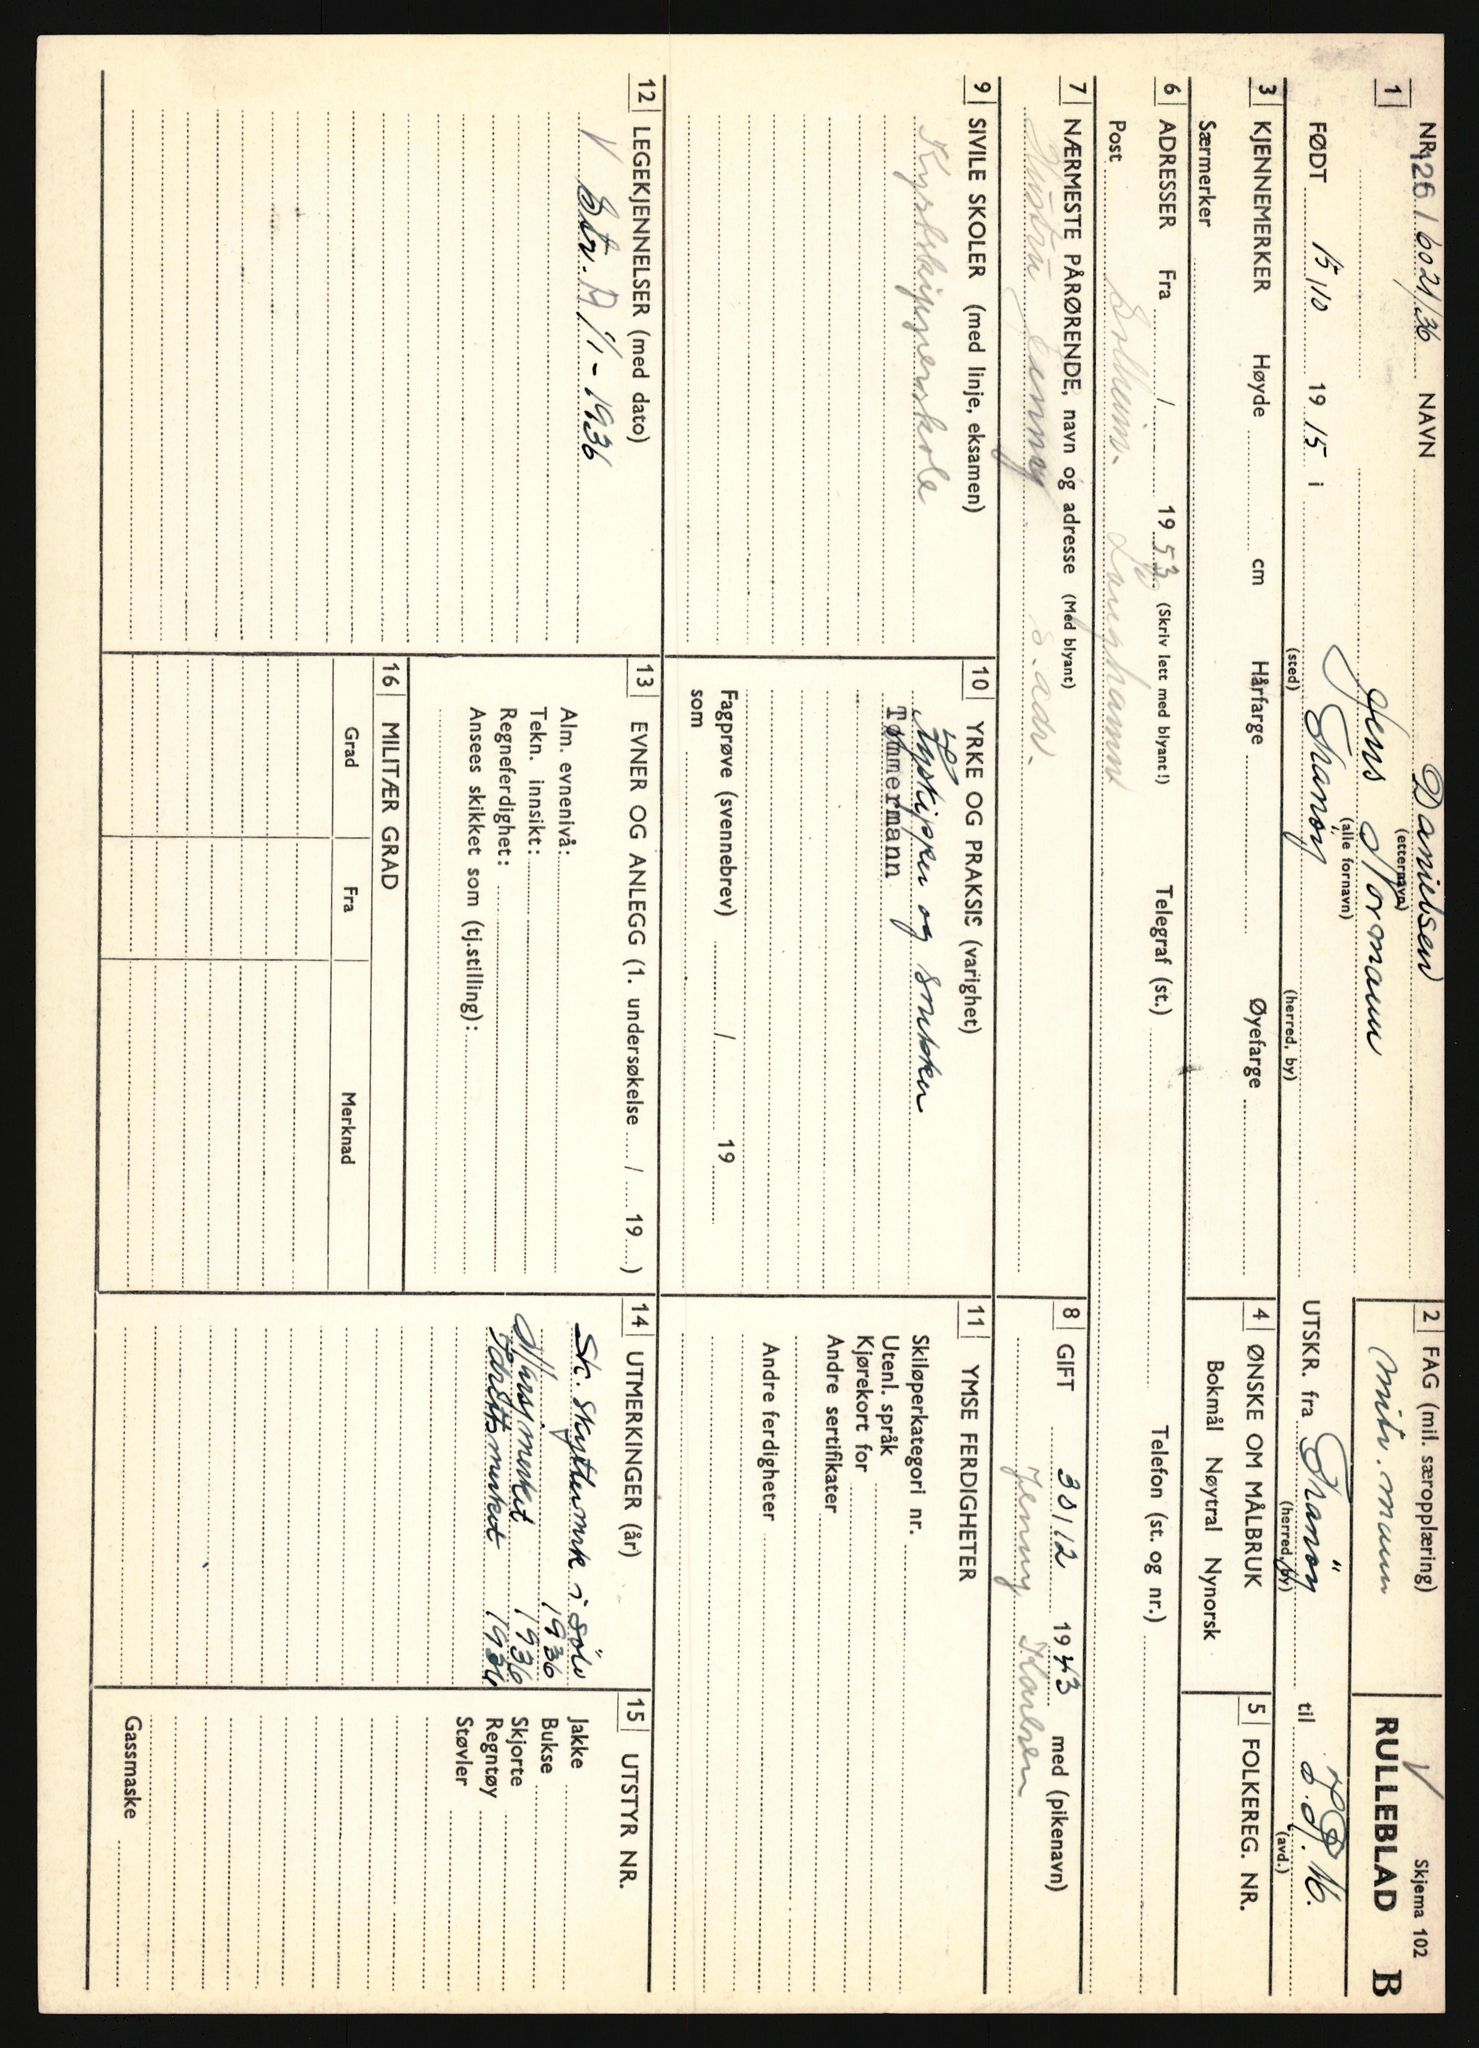 NR. 1261 6021/36 NAVN Danielsen 2 FAG (mil. særopplæring) Skjema 102
(etternavn)
1 Jens Normann mitr. mann RULLEBLAD B
(alle fornavn)
FØDT 15/10 1915 i Tranøy UTSKR. fra Tranøy til I.R. 16.
(sted) (herred, by) (herred, by) (avd.)
3 KJENNEMERKER Høyde cm Hårfarge Øyefarge 4 ØNSKE OM MÅLBRUK 5 FOLKEREG. NR.
Særmerker Bokmål Nøytral Nynorsk
6 ADRESSER Fra / 1953 (Skriv lett med blyant!) Telegraf (st.) Telefon (st. og nr.)
Post Solheim. Langhamn
7 NÆRMESTE PÅRØRENDE, navn og adresse (Med blyant) 8 GIFT 30/12 1943 med (pikenavn)
Hustru Jenny s. adr. Jenny Karlsen
9 SIVILE SKOLER (med linje, eksamen) 10 YRKE OG PRAKSIS (varighet) 11 YMSE FERDIGHETER
Kystskipperskole Kystskipper og snekker Skiløperkategori nr.
Tømmermann Utenl. språk
Kjørekort for
Andre sertifikater
Andre ferdigheter
Fagprøve (svennebrev) / 19
som
12 LEGEKJENNELSER (med dato) 13 EVNER OG ANLEGG (1. undersøkelse / 19 ) 14 UTMERKINGER (år) 15 UTSTYR NR.
V Str. A 1/1 - 1936 Alm. evnenivå: Sk. skyttermrk i sølv Jakke
Tekn. innsikt: 1936 Bukse
Regneferdighet: Marsjmerket 1936 Skjorte
Ansees skikket som (tj.stilling): Idrettsmerket 1936 Regntøy
Støvler
16 MILITÆR GRAD
Grad Fra Merknad
Gassmaske